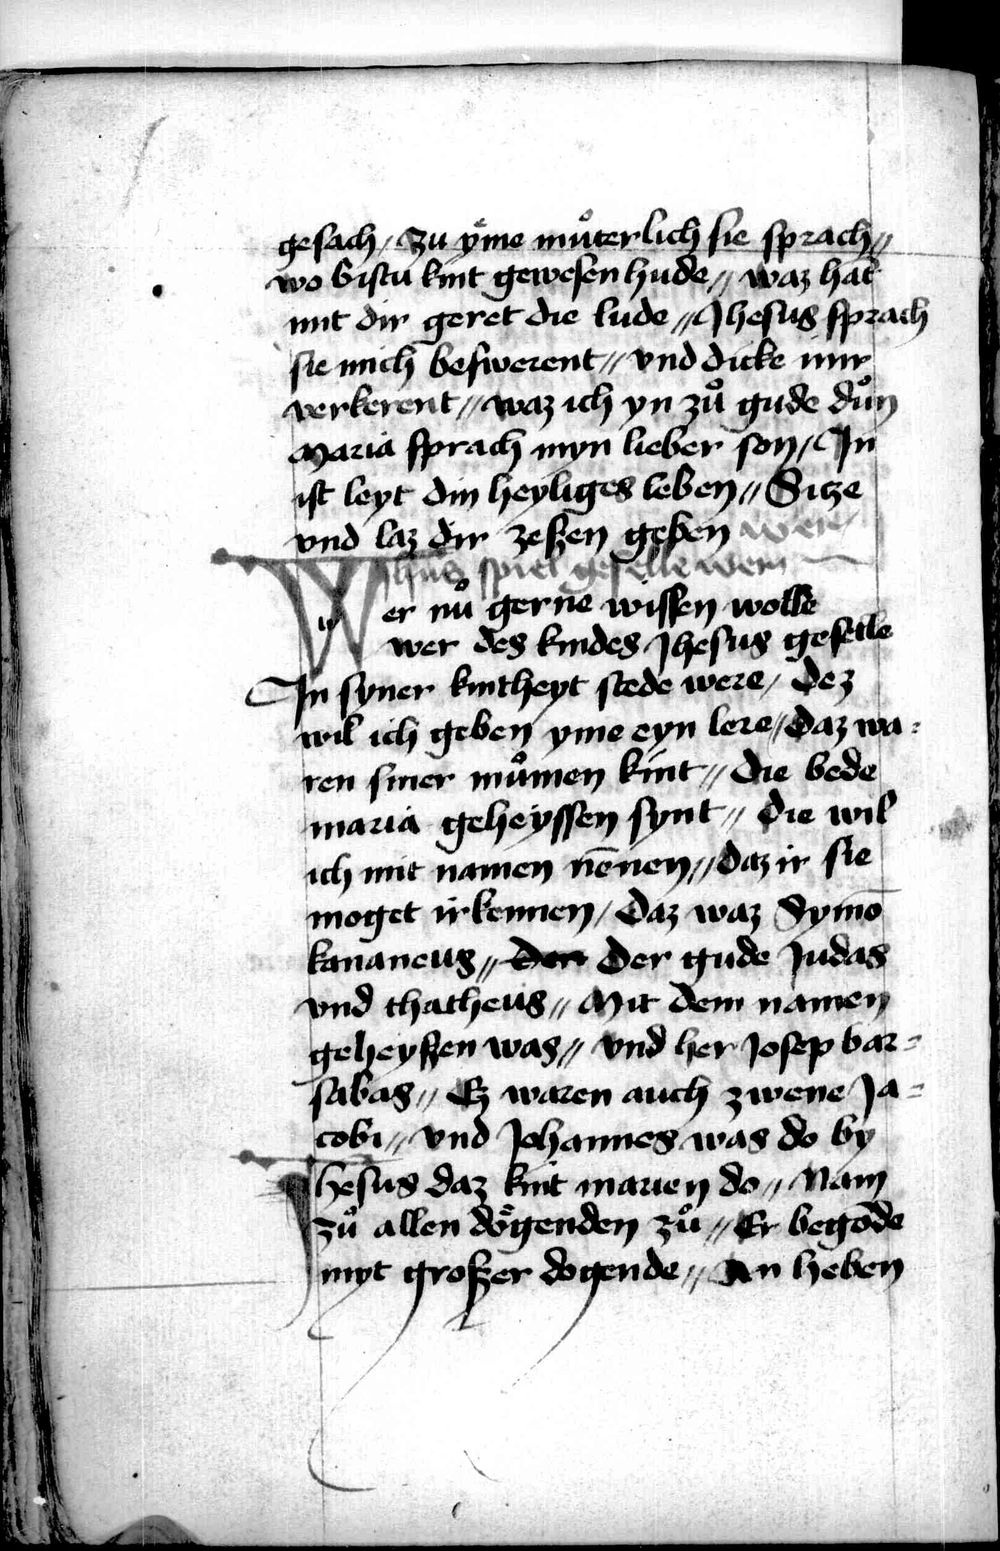 gesach / Zu yͤme muͦterlich sie sprach //
wo bistu kint gewesen hude // waz hat
mit dir geret die lude // Jhesus sprach
sie mich beswerent // vnd dicke mir
verkerent // waz ich yn zuͦ gude duͦn
Maria sprach myn lieber son / In
ist leyt din heyliges leben // Sitze
vnd laz dir zeßen geben wer
Jhus spiel geselle wern
Wer nuͦ gerne wissen wolle
wer des kindes Jhesus geselle
In syner kintheyt stede were / Dez
wil ich geben yme eyn lere / Daz wa=
ren siner muͦmen kint // Die bede
maria geheyssen synt // Die wil
ich mit namen nēnen // Daz ir sie
moget irkennen / Daz waz Symō
kananeus // Den Der gude Judas
vnd thatheus // Mit dem namen
geheyßen was // vnd her Josep bar=
sabas // Ez waren auch zwene Ja=
cobi // vnd Johannes was do by
Jhesus daz kint marien do // Nam
zuͦ allen doͤgenden zuͦ // Er begōde
myt großer dogende // An heben